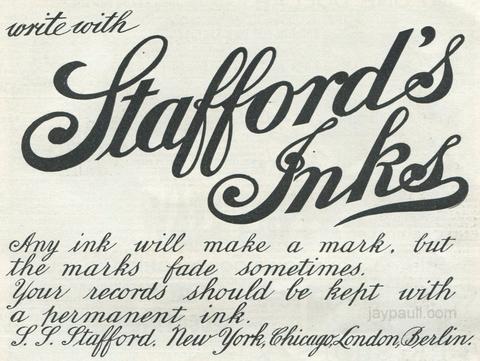 write with
Stafford's
Inks
Any ink will make a mark, but
the marks fade sometimes.
Your records should be kept with
a permanent ink.
S. S. Stafford, New York, Chicago, London, Berlin.
jaypaull.com